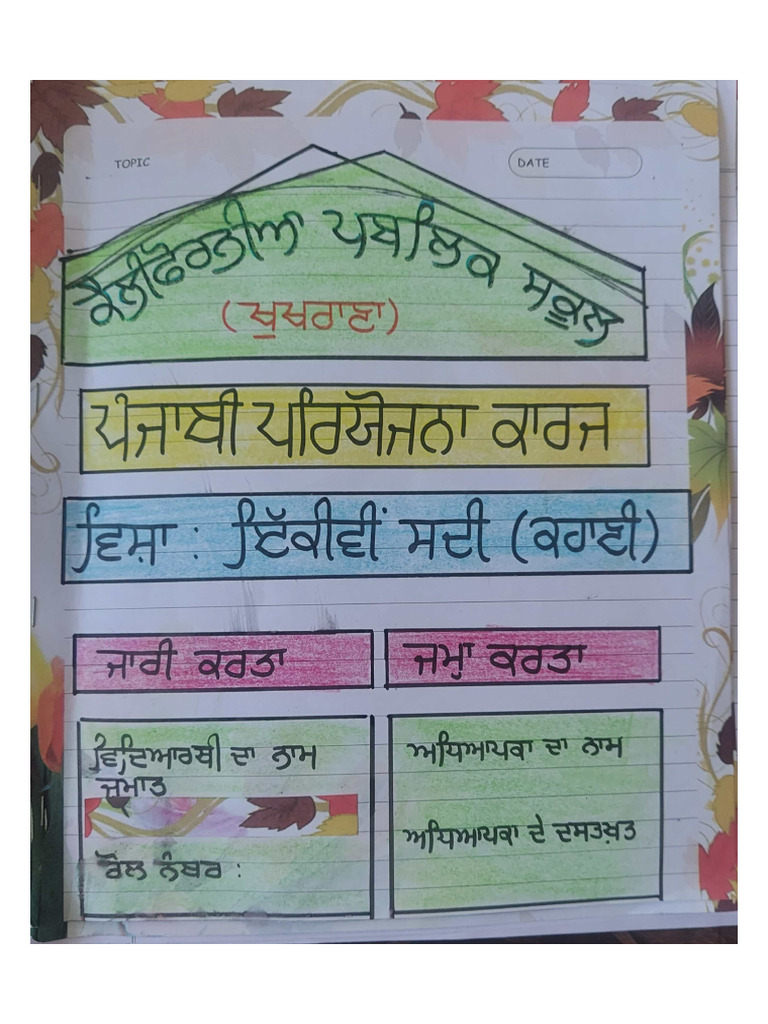 TOPIC
DATE
ਕੈਲੀਫੋਰਨੀਆ ਪਬਲਿਕ ਸਕੂਲ
(ਖੁਖਰਾਣਾ)
ਪੰਜਾਬੀ ਪਰਿਯੋਜਨਾ ਕਾਰਜ
ਵਿਸ਼ਾ : ਇੱਕੀਵੀਂ ਸਦੀ (ਕਹਾਣੀ)
ਜਾਰੀ ਕਰਤਾ
ਜਮ੍ਹਾ ਕਰਤਾ
ਵਿਦਿਆਰਥੀ ਦਾ ਨਾਮ
ਜਮਾਤ
ਰੋਲ ਨੰਬਰ :
ਅਧਿਆਪਕਾ ਦਾ ਨਾਮ
ਅਧਿਆਪਕਾ ਦੇ ਦਸਤਖ਼ਤ